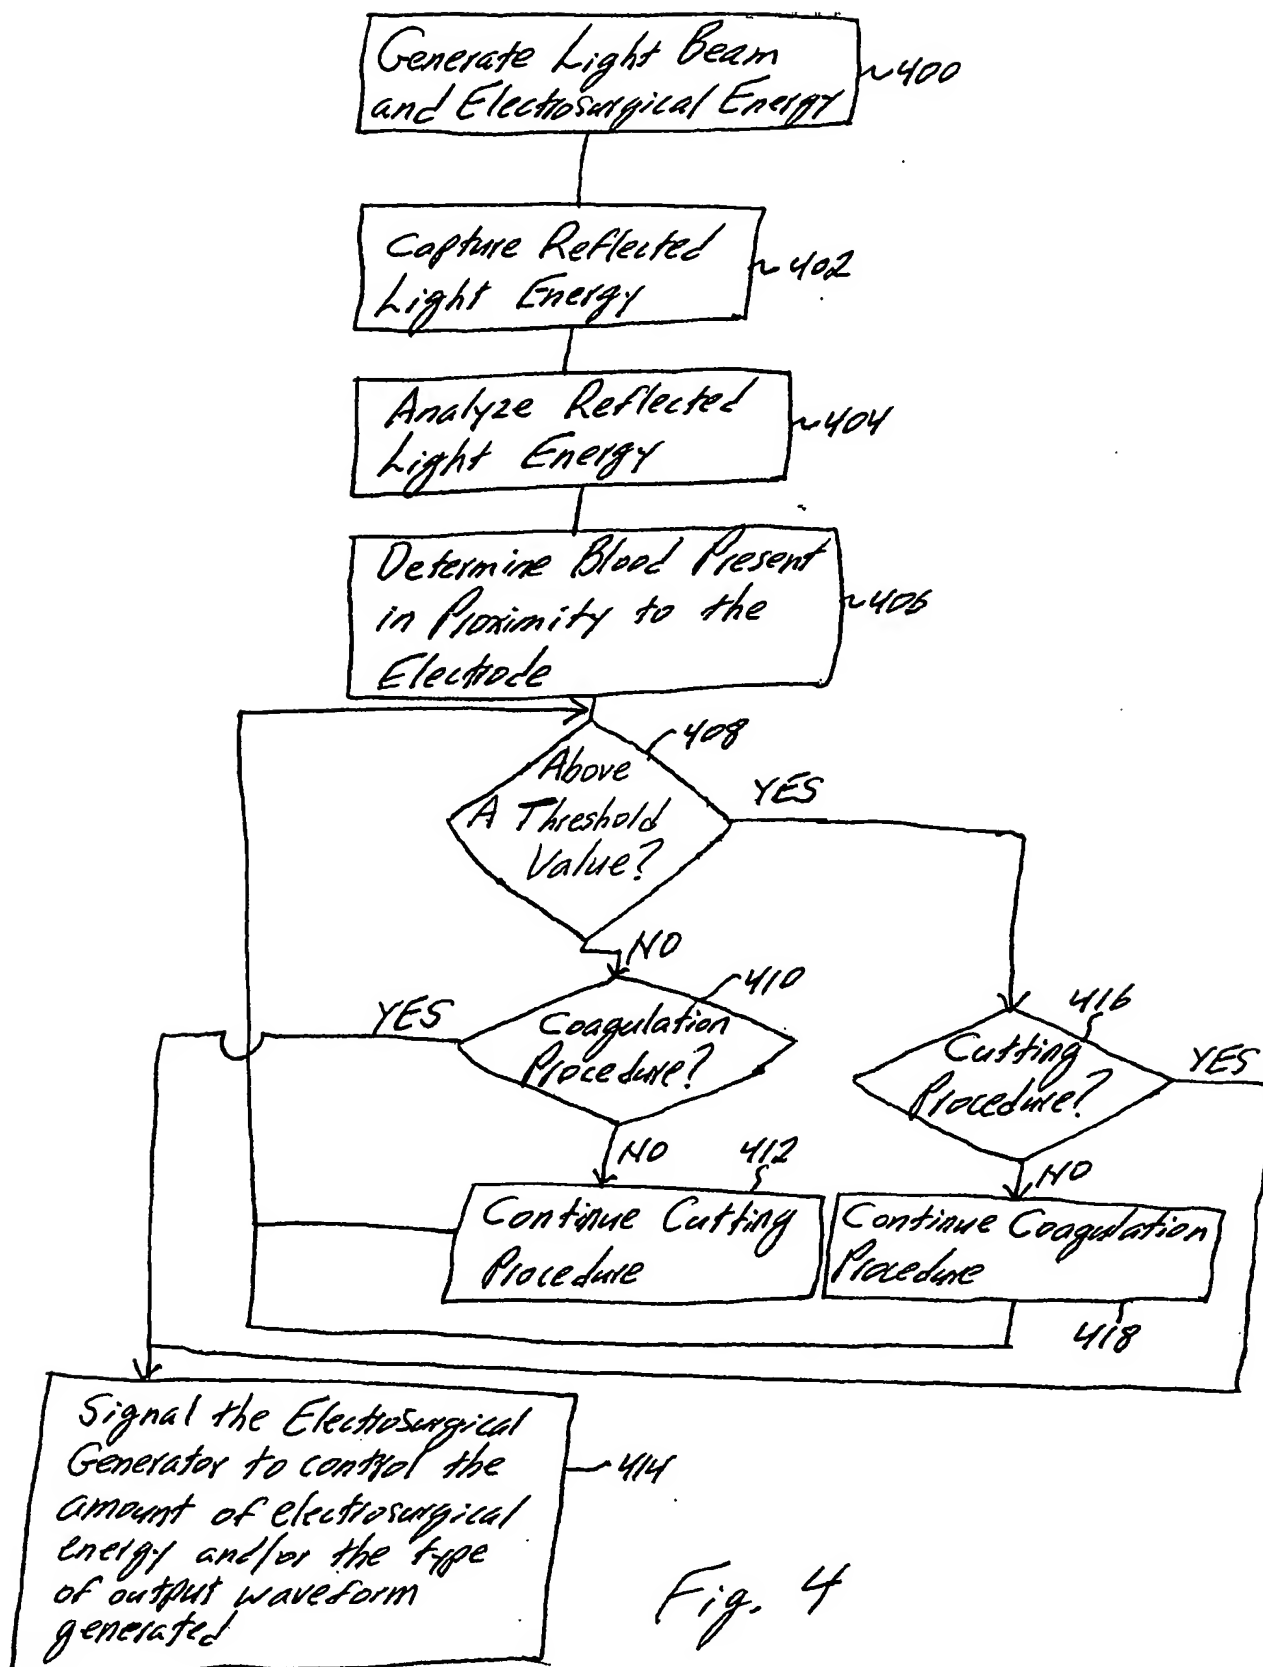 Generate Light Beam
and Electrosurgical Energy
400
Capture Reflected
Light Energy
402
Analyze Reflected
Light Energy
404
Determine Blood Present
in Proximity to the
Electrode
406
408
Above
A Threshold
Value?
YES
NO
410
Coagulation
Procedure?
YES
416
Cutting
Procedure?
YES
NO
412
NO
Continue Cutting
Procedure
Continue Coagulation
Procedure
418
Signal the Electrosurgical
Generator to control the
amount of electrosurgical
energy and/or the type
of output waveform
generated
414
Fig. 4